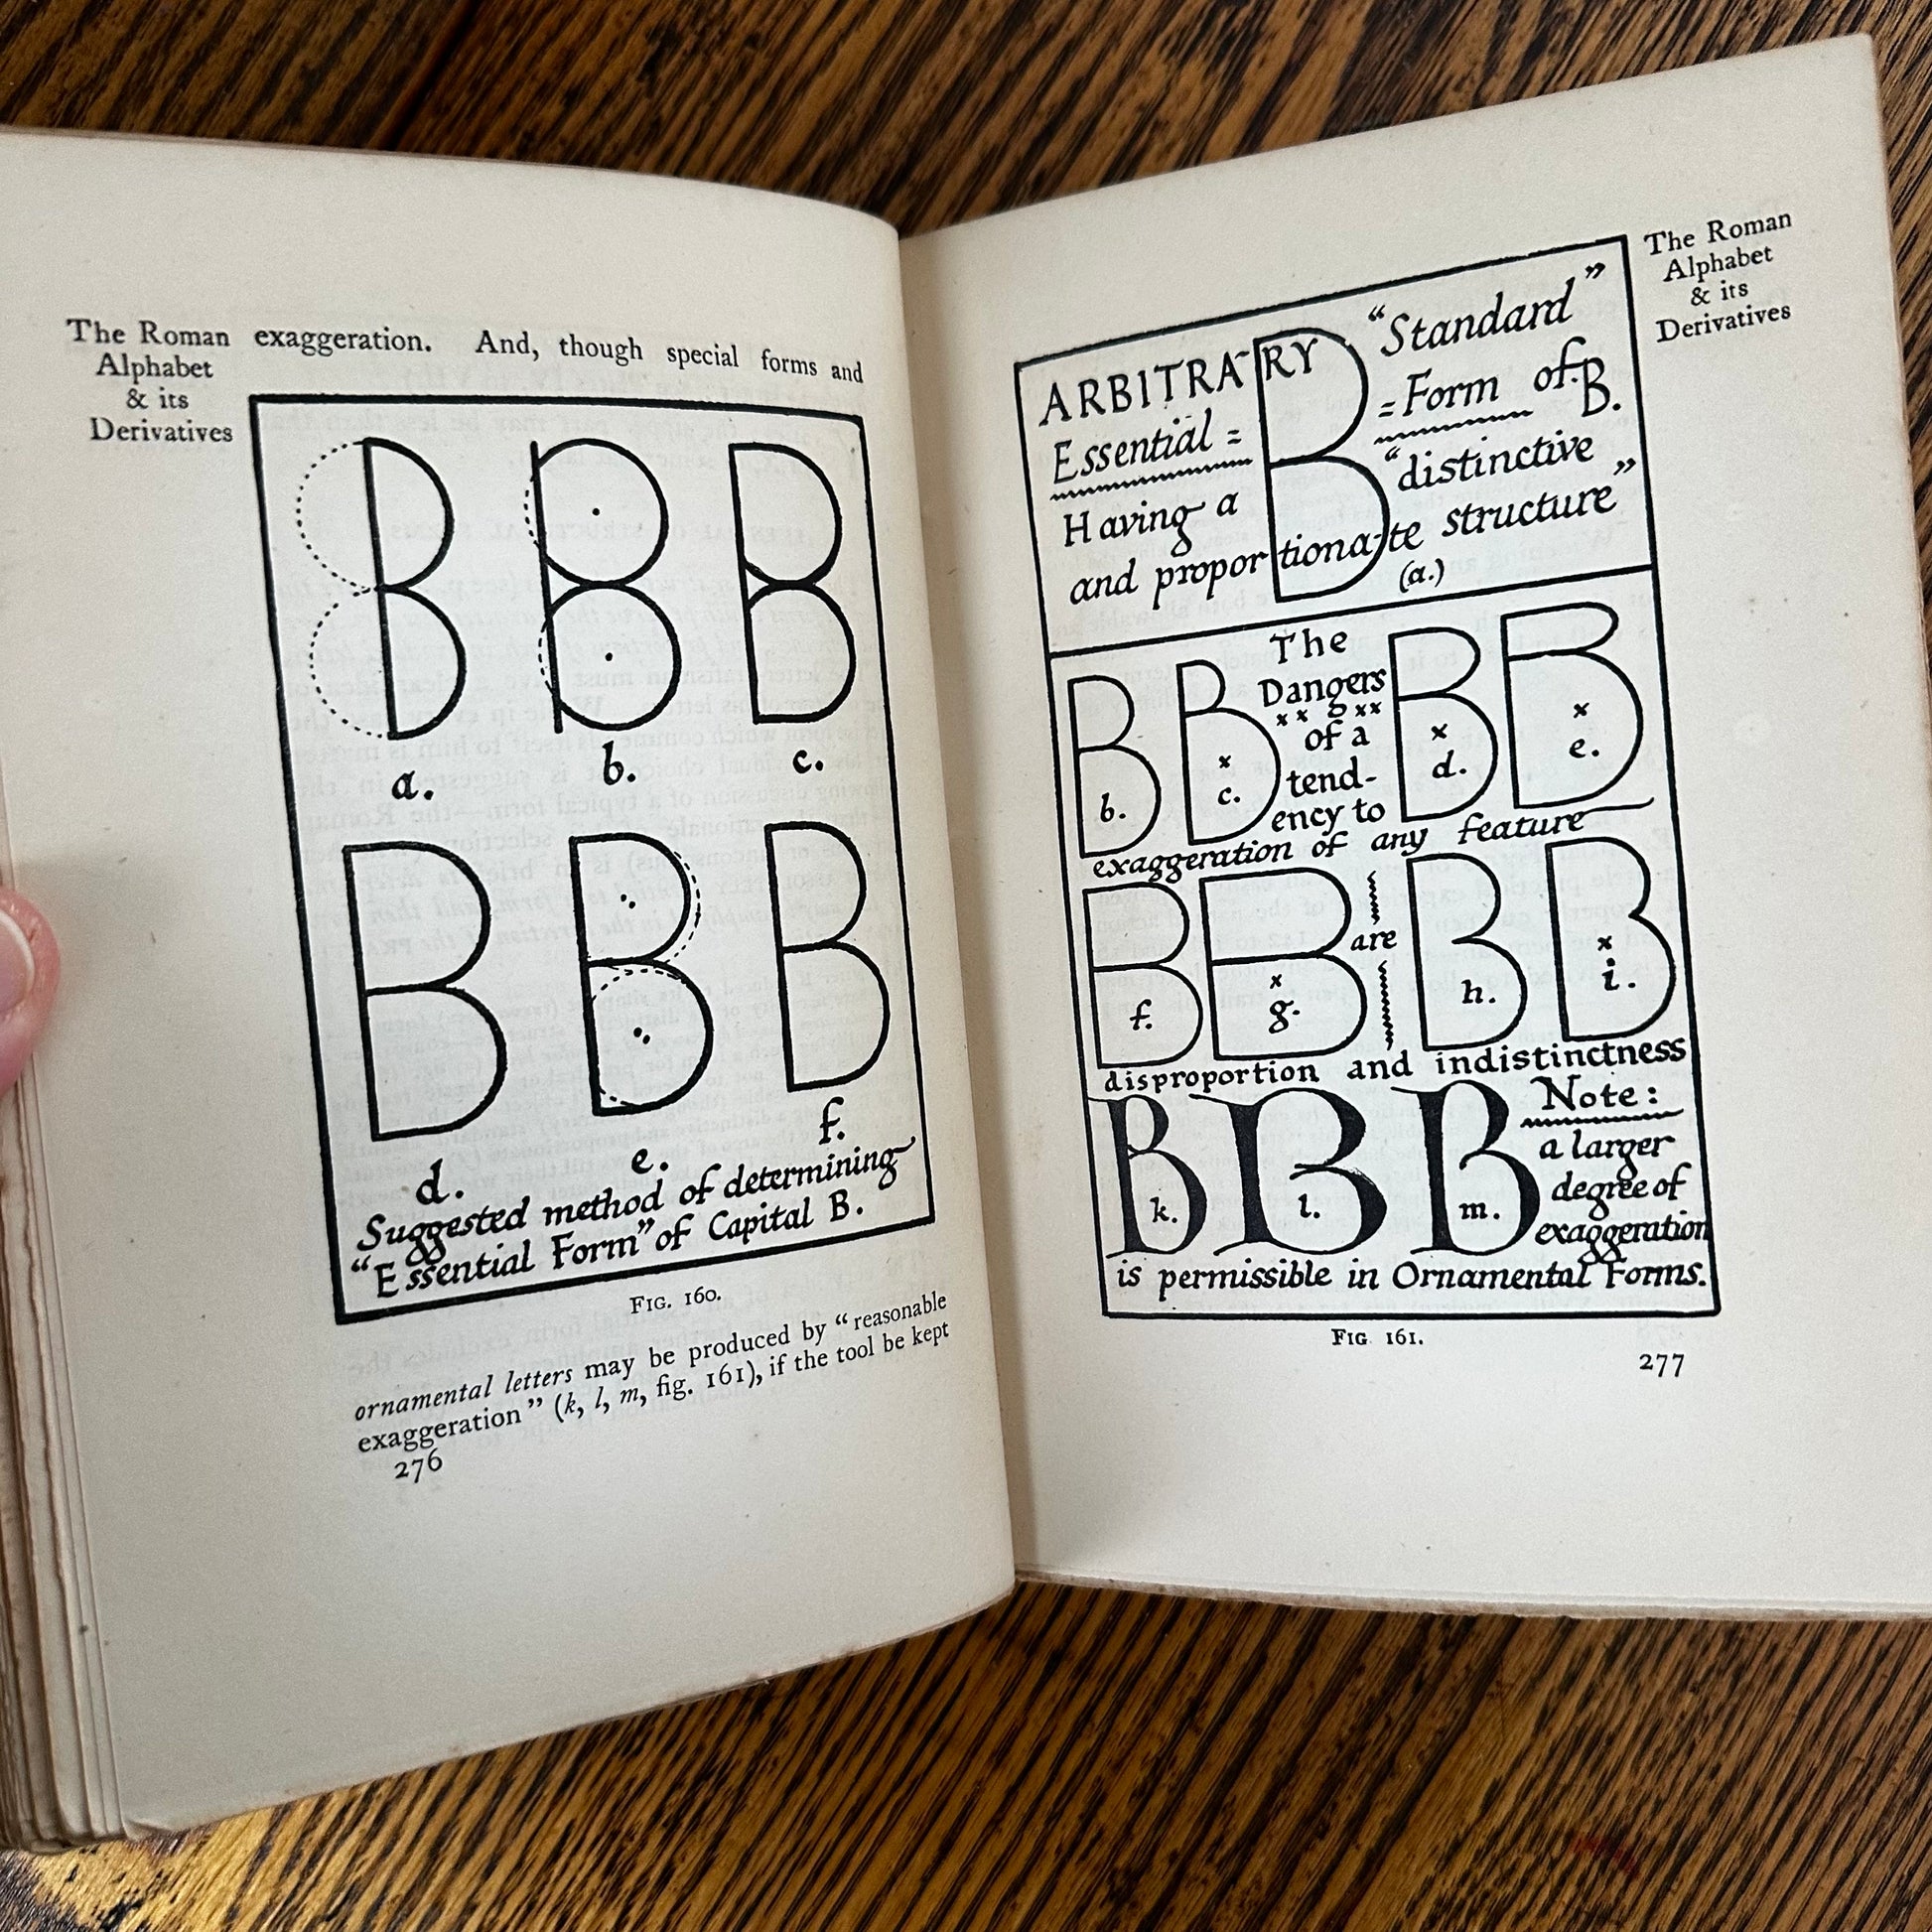 The Roman
Alphabet
& its
Derivatives
exaggeration. And, though special forms and
a.
b.
c.
d.
e.
f.
Suggested method of determining
"Essential Form" of Capital B.
FIG. 160.
ornamental letters may be produced by "reasonable
exaggeration" (k, l, m, fig. 161), if the tool be kept
276
The Roman
Alphabet
& its
Derivatives
ARBITRARY "Standard"
Essential = B = Form of B.
Having a "distinctive
and proportionate structure"
(a.)
The
Dangers
of a
tend-
ency to
b.
c.
d.
e.
exaggeration of any feature
f.
g.
are
h.
i.
disproportion and indistinctness
k.
l.
m.
Note:
a larger
degree of
exaggeration
is permissible in Ornamental Forms.
FIG 161.
277